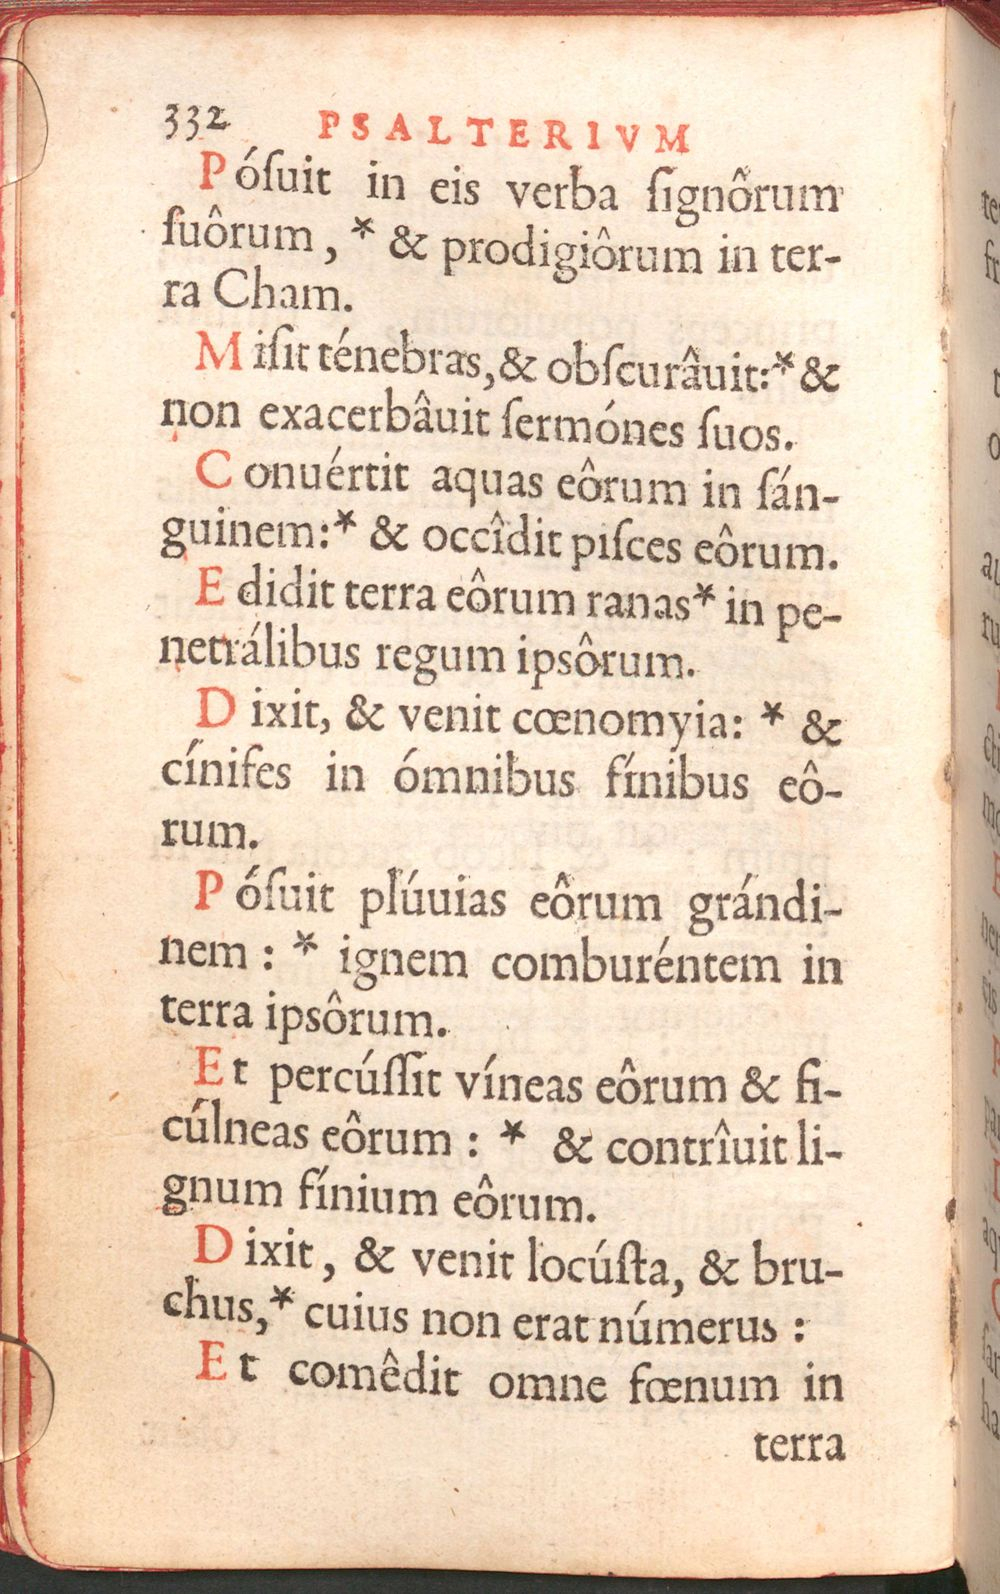 332 PSALTERIVM
Póſuit in eis verba ſignôrum
ſuôrum, * & prodigiôrum in ter-
ra Cham.
Miſit ténebras, & obſcurâuit: * &
non exacerbâuit ſermónes ſuos.
Conuértit aquas eôrum in ſán-
guinem: * & occîdit piſces eôrum.
Edidit terra eôrum ranas * in pe-
netrálibus regum ipsôrum.
Dixit, & venit cœnomyia: * &
cínifes in ómnibus fínibus eô-
rum.
Póſuit plúuias eôrum grándi-
nem: * ignem comburéntem in
terra ipsôrum.
Et percúſſit víneas eôrum & fi-
cúlneas eôrum: * & contrîuit li-
gnum fínium eôrum.
Dixit, & venit locúſta, & bru-
chus, * cuius non erat númerus:
Et comêdit omne fœnum in
terra